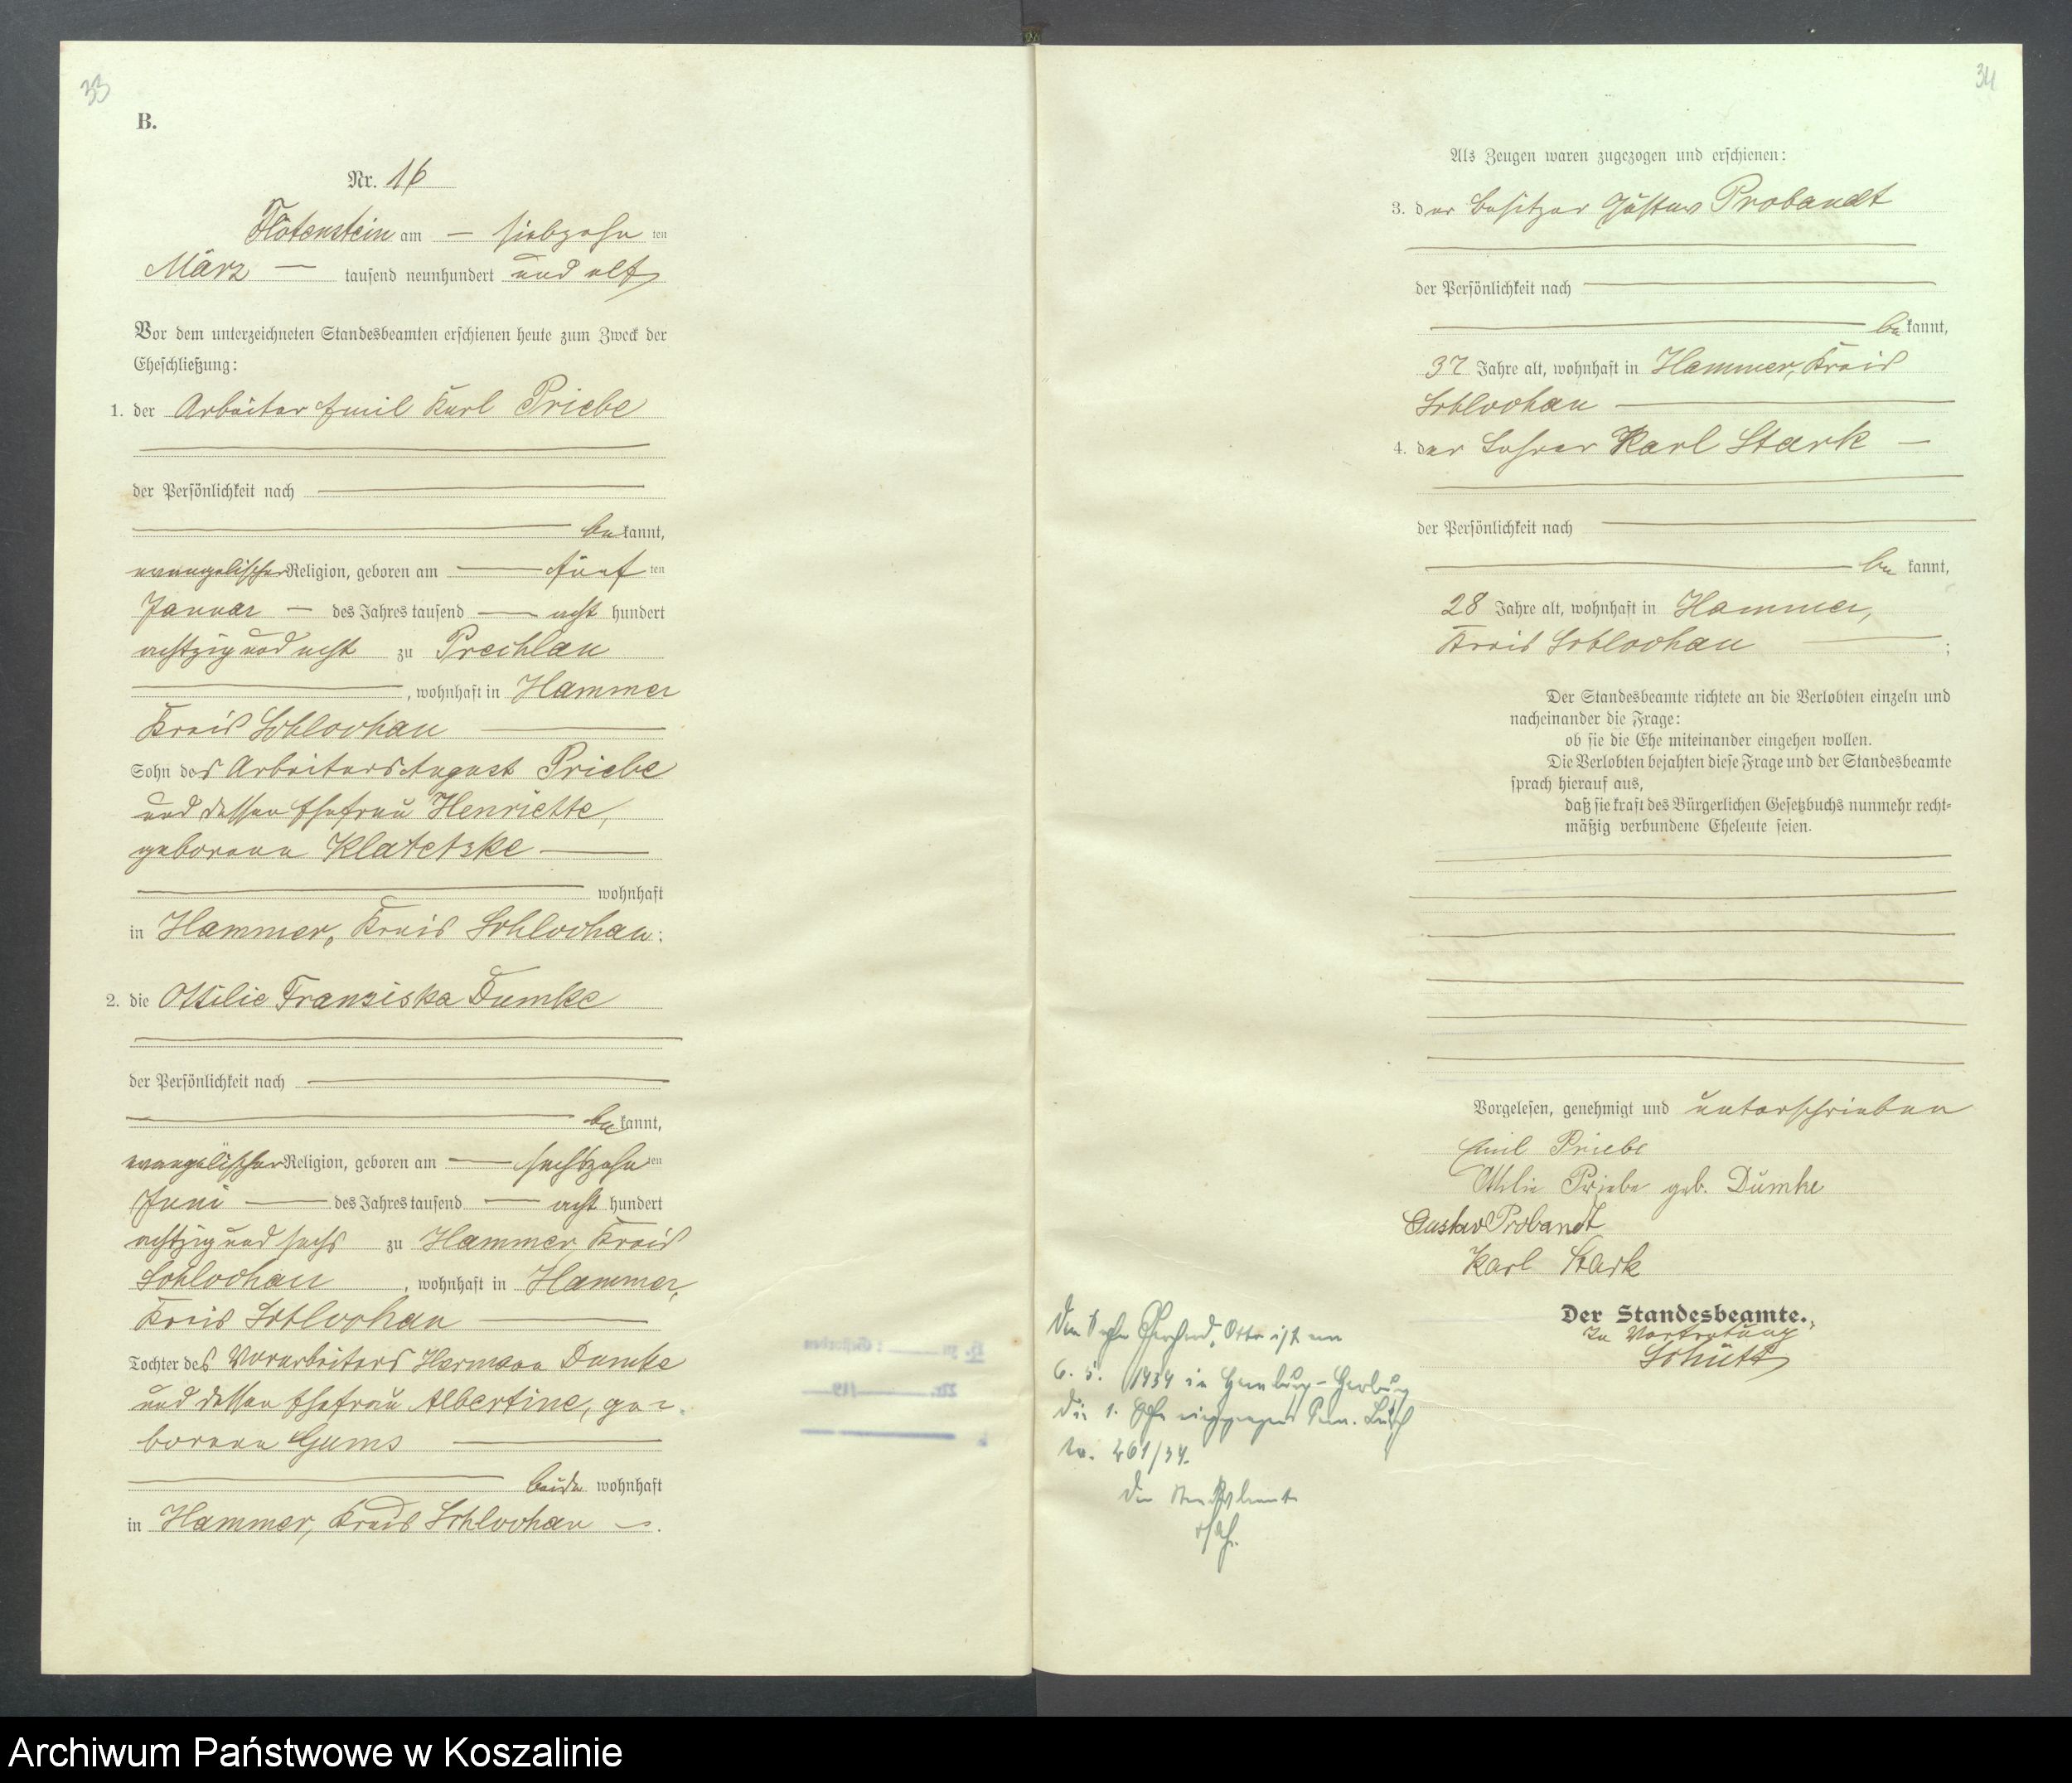 33
B.
Nr. 16
Flötenstein am — siebzehn ten
März — tausend neunhundert und elf
Vor dem unterzeichneten Standesbeamten erschienen heute zum Zweck der
Eheschließung:
1. der Arbeiter Emil Karl Priebe
der Persönlichkeit nach
be kannt,
evangelischer Religion, geboren am — fünf ten
Januar — des Jahres tausend — acht hundert
achtzig und acht zu Prechlau
, wohnhaft in Hammer
Kreis Schlochau
Sohn des Arbeiters August Priebe
und dessen Ehefrau Henriette,
geborene Klatetzke —
wohnhaft
in Hammer, Kreis Schlochau;
2. die Ottilie Franziska Dumke
der Persönlichkeit nach
be kannt,
evangelischer Religion, geboren am — sechszehn ten
Juni — des Jahres tausend — acht hundert
achtzig und sechs zu Hammer Kreis
Schlochau , wohnhaft in Hammer,
Kreis Schlochau —
Tochter des Vorarbeiters Hermann Dumke
und dessen Ehefrau Albertine, ge=
borene Gums —
beide wohnhaft
in Hammer, Kreis Schlochau —.
34
Als Zeugen waren zugezogen und erschienen:
3. der Besitzer Gustav Probandt
der Persönlichkeit nach
be kannt,
37 Jahre alt, wohnhaft in Hammer, Kreis
Schlochau —
4. der Lehrer Karl Stark —
der Persönlichkeit nach
be kannt,
28 Jahre alt, wohnhaft in Hammer,
Kreis Schlochau — ;
Der Standesbeamte richtete an die Verlobten einzeln und
nacheinander die Frage:
ob sie die Ehe miteinander eingehen wollen.
Die Verlobten bejahten diese Frage und der Standesbeamte
sprach hierauf aus,
daß sie kraft des Bürgerlichen Gesetzbuchs nunmehr recht=
mäßig verbundene Eheleute seien.
Vorgelesen, genehmigt und unterschrieben
Emil Priebe
Ottilie Priebe geb. Dumke
Gustav Probandt
Karl Stark
Der Standesbeamte.
In Vertretung
Schütt
Der Sohn Otto ist am
6. 5. 1934 in Hamburg-Harburg
die 1. Ehe eingegangen
Nr. 261/34.
Der Standesbeamte
Archiwum Państwowe w Koszalinie